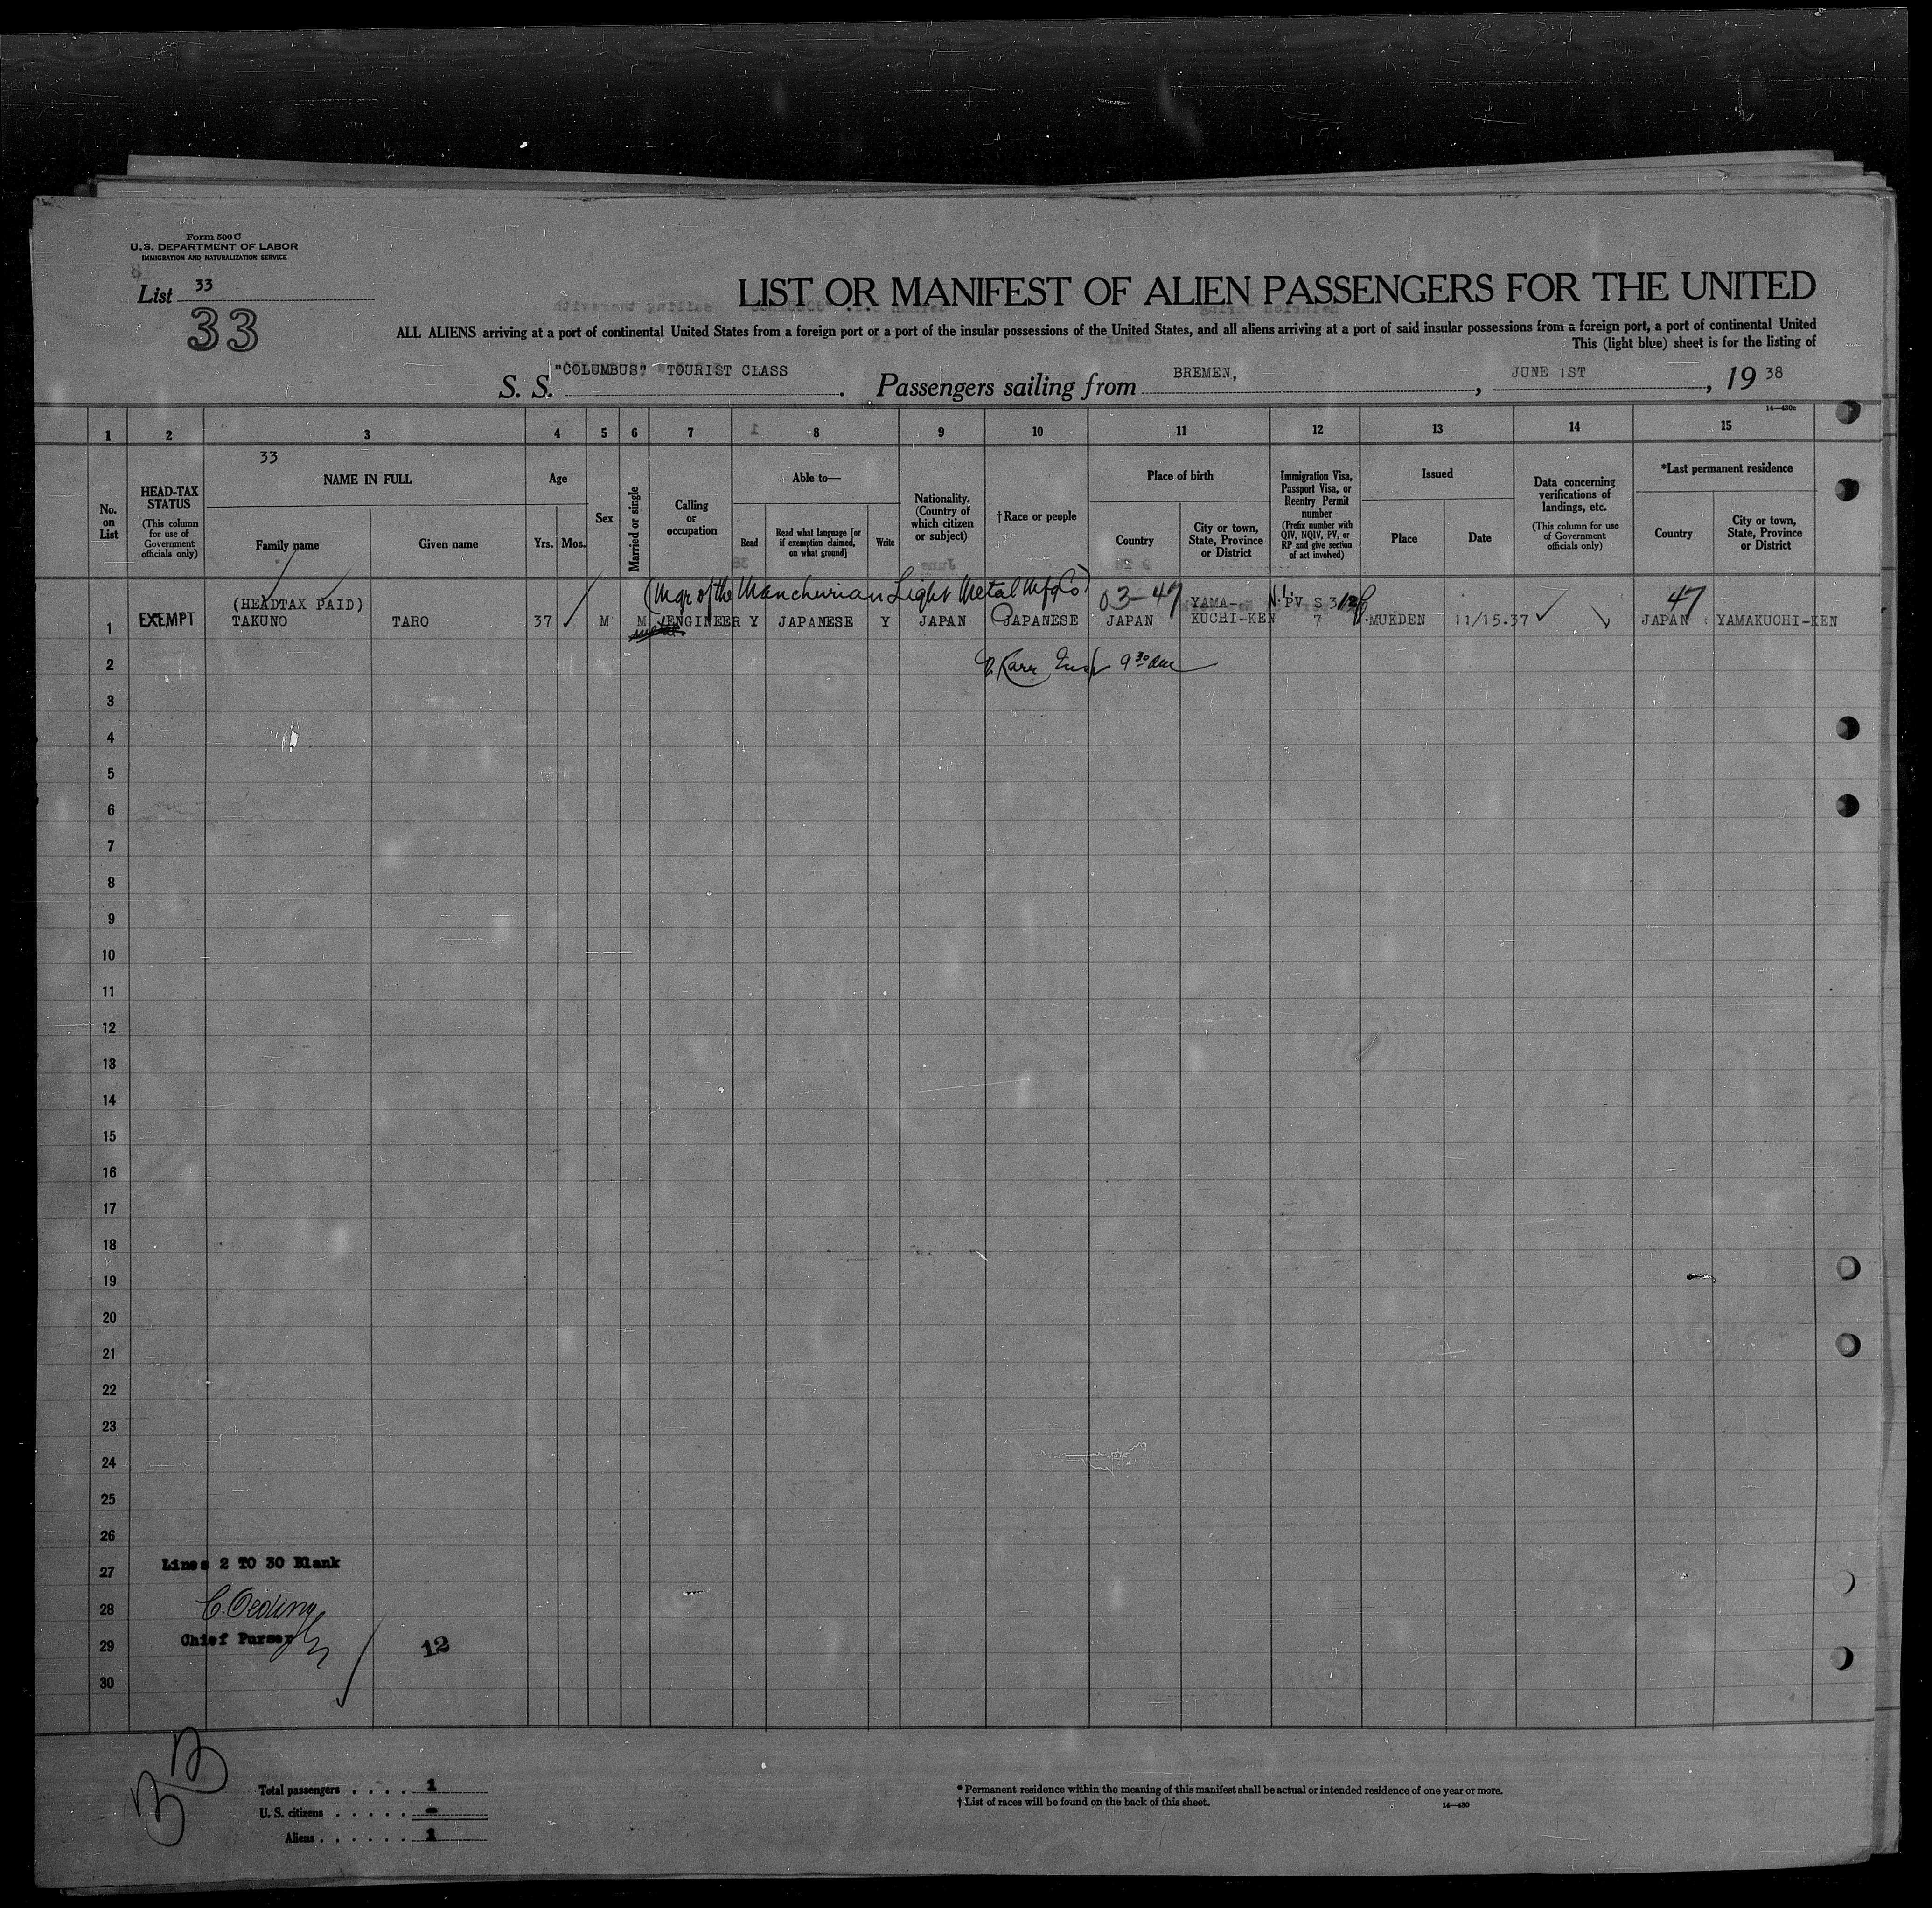 Form 500 C
U.S. DEPARTMENT OF LABOR
IMMIGRATION AND NATURALIZATION SERVICE
List 33
33
LIST OR MANIFEST OF ALIEN PASSENGERS FOR THE UNITED
ALL ALIENS arriving at a port of continental United States from a foreign port or a port of the insular possessions of the United States, and all aliens arriving at a port of said insular possessions from a foreign port, a port of continental United
This (light blue) sheet is for the listing of
S. S. "COLUMBUS" TOURIST CLASS . Passengers sailing from BREMEN, , JUNE 1ST , 19 38
14—430c
1 2 3 4 5 6 7 8 9 10 11 12 13 14 15
33
No. on List
HEAD-TAX STATUS
(This column for use of Government officials only)
NAME IN FULL
Family name
Given name
Age
Yrs. Mos.
Sex
Married or single
Calling or occupation
Able to—
Read
Read what language [or if exemption claimed, on what ground]
Write
Nationality. (Country of which citizen or subject)
†Race or people
Place of birth
Country
City or town, State, Province or District
Immigration Visa, Passport Visa, or Reentry Permit number
(Prefix number with QIV, NQIV, PV, or RP and give section of act involved)
Issued
Place
Date
Data concerning verifications of landings, etc.
(This column for use of Government officials only)
*Last permanent residence
Country
City or town, State, Province or District
(Mgr of the Manchurian Light Metal Mfg Co)
(HEADTAX PAID) 03-47 YAMA- PV S 3 47
1 EXEMPT TAKUNO TARO 37 M M ENGINEER Y JAPANESE Y JAPAN JAPANESE JAPAN KUCHI-KEN 7 MUKDEN 11/15.37 JAPAN YAMAKUCHI-KEN
2 Karr Insp 9 30 am
3
4
5
6
7
8
9
10
11
12
13
14
15
16
17
18
19
20
21
22
23
24
25
26
27 Lines 2 TO 30 Blank
28 C. Oeding
29 Chief Purser 12
30
Total passengers . . . . 1
U. S. citizens . . . . . -
Aliens . . . . . . 1
* Permanent residence within the meaning of this manifest shall be actual or intended residence of one year or more.
† List of races will be found on the back of this sheet.
14—430